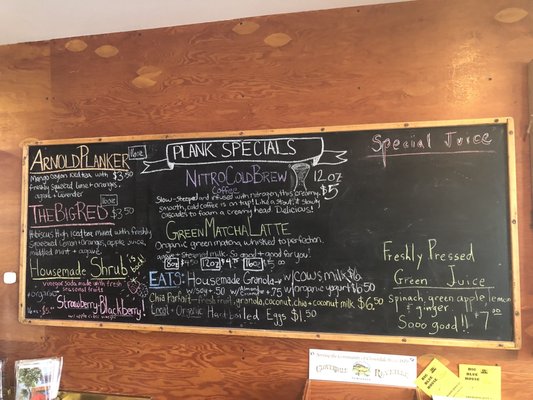 ARNOLDPLANKER 16oz
Mango Ceylon Iced tea with $3.50
freshly squeezed lime + oranges,
agave + lavender
THEBIGRED 16oz $3.50
Hibiscus High Iced tea mixed with freshly
squeezed lemon + oranges, apple juice,
muddled mint + agave
Housemade Shrub is back!
vinegar soda made with fresh
+ organic seasonal fruits
Strawberry Blackberry!
16oz
w/ apple cider vinegar
PLANK SPECIALS
NITROCOLDBREW 12oz
Coffee $5
Slow-steeped and infused with nitrogen, this creamy,
smooth, cold coffee is on tap! Like a stout, it slowly
cascades to form a creamy head. Delicious!
GREENMATCHALATTE
Organic green matcha, whisked to perfection,
agave + steamed milk. So good + good for you!
8oz 12oz 16oz
EATS: Housemade Granola w/ cows milk $6
w/ soy + .50 w/ organic yogurt $6.50
Chia Parfait - fresh fruit, granola, coconut, chia + coconut milk $6.50
Local + Organic Hard boiled Eggs $1.50
Special Juice
Freshly Pressed
Green Juice
Spinach, green apple, lemon
+ ginger.
Sooo good!! $7.00
BIG
BLUE
HOUSE
BIG
BLUE
HOUSE